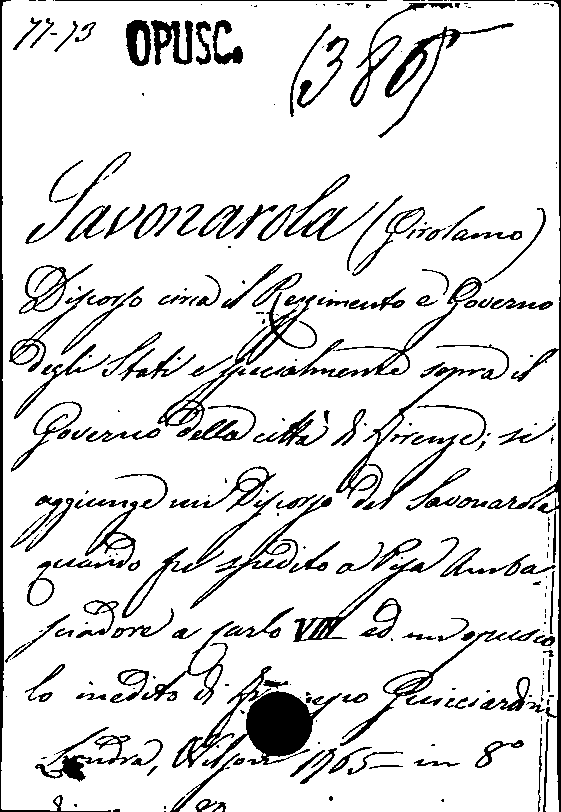 77-73 OPUSC. (386)
Savonarola (Girolamo)
Discorso circa il Reggimento e Governo
degli Stati e specialmente sopra il
Governo della città di Firenze; si
aggiunge un Discorso del Savonarola
quando fu spedito a Pisa Amba-
sciadore a Carlo VIII ed un opusco
lo inedito di Guicciardini
Londra, 1765 in 8°